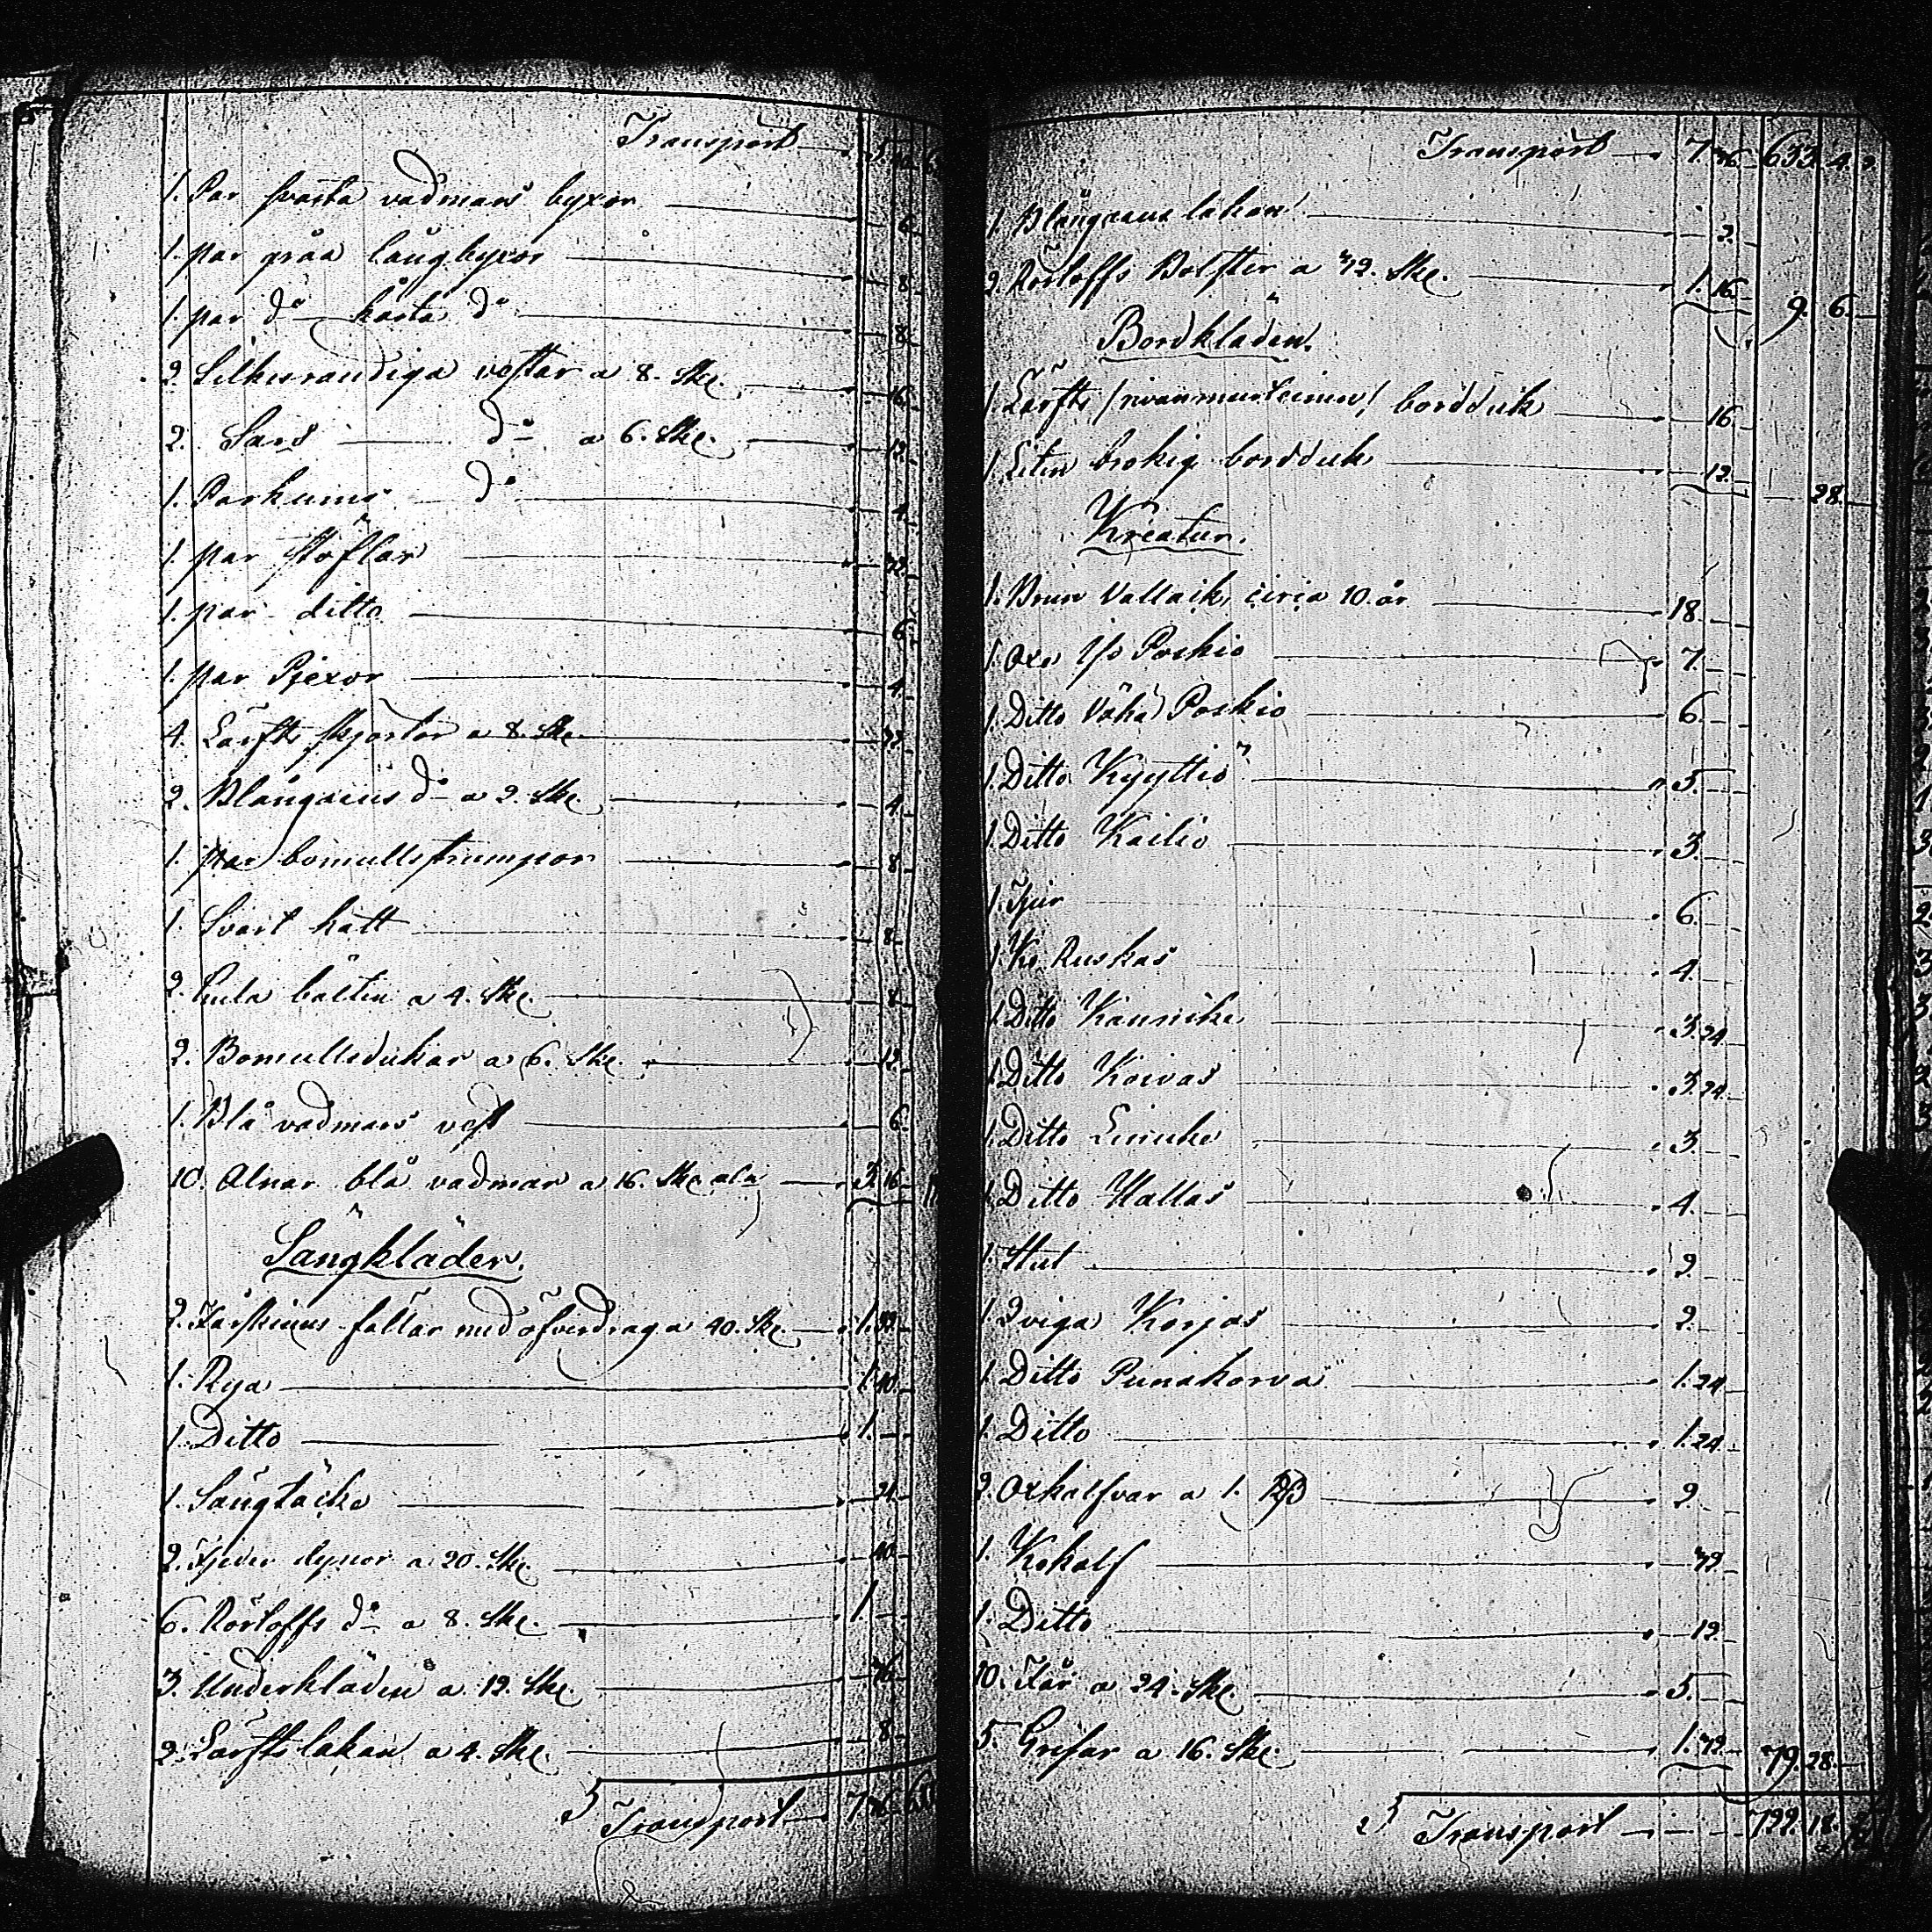 Transport
1. Par svarta vadmans byxor — 6.
1. par gråa långbyxor — 8.
1. par d:o korta d:o — 8.
2. Silkesrandiga vestar a 8. Sk. — 16.
2. Sars d:o a 6. Sk. — 12.
1. Parkums d:o — 4.
1. par stöflar — 32.
1. par ditto — 6.
1. par Pjexor — 4.
4. Lärfts skjortor a 8. Sk. — 32.
2. Blångarns d:o a 2. Sk. — 4.
1. par bomullsstrumpor — 8.
1. Svart hatt — 8.
2. Gula bälten a 4. Sk. — 8.
2. Bomullsdukar a 6. Sk. — 12.
1. Blå vadmans vest — 6.
10. Alnar blå vadmar a 16. Sk. aln — 3. 16.
Sängkläder.
2. Fårskinns fällar med öfverdrag a 40. Sk. — 1. 32.
1. Rya — 1. 40.
1. Ditto — 1.
1. Sängtäcke — 24.
2. Fjeder dynor a 20. Sk. — 40.
6. Rörloffs d:o a 8. Sk. — 1.
3. Underkläden a 12. Sk. — 36.
2. Lärfts lakan a 4. Sk. — 8.
Transport — 7. 36.
Transport — 7. 36. 633. 4. 2.
1. Blångarns lakan — 2.
2. Rörloffs Bolster a 32. Sk. — 1. 16. 9. 6.
Bordkläden.
1. Lärfts bordduk — 16.
1. Liten brokig bordduk — 12. 28.
Kreatur.
1. Brun Vallack, circa 10. år — 18.
1. Oxe Iso Poikio — 7.
1. Ditto Vähä Poikio — 6.
1. Ditto Kyyttiö — 5.
1. Ditto Kailio — 3.
1. Tjur — 6.
1. Ko Ruskas — 4.
1. Ditto Kaunike — 3. 24.
1. Ditto Koivas — 3. 24.
1. Ditto — 3.
1. Ditto Hallas — 4.
1. Stut — 2.
1. Qviga Korjas — 2.
1. Ditto Punakorva — 1. 24.
1. Ditto — 1. 24.
2. Oxkalfvar a 1. R — 2.
1. Kokalf — 32.
1. Ditto — 12.
10. Får a 24. Sk. — 5.
5. Grisar a 16. Sk. — 1. 32. 79. 28.
Transport — 722. 18.